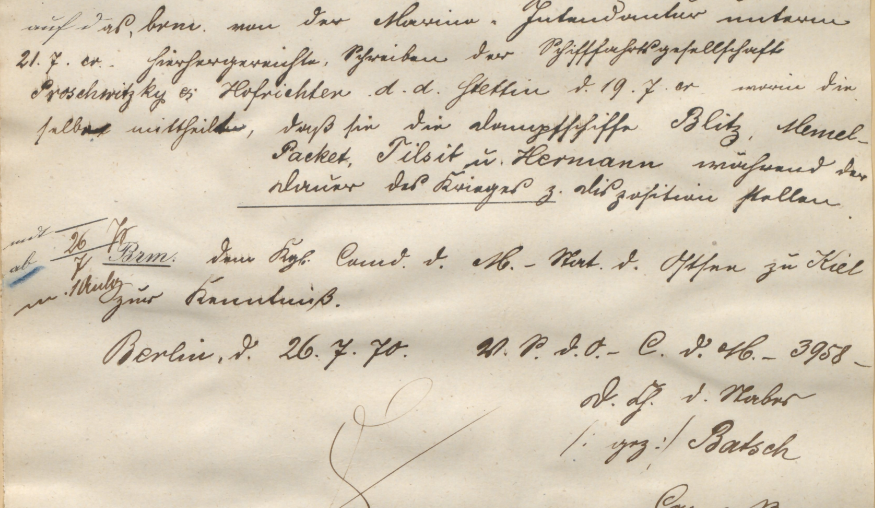 auf das, brm. von der Marine-Intendantur unterm
21. 7. cr. hierhergereichte, Schreiben der Schifffahrtsgesellschaft
Proschwitzky & Hofrichter d. d. Stettin d. 19. 7. cr worin die
selbe mittheilt, daß sie die Dampfschiffe Blitz, Memel-
Packet, Tilsit u. Hermann während der
Dauer des Krieges z. Disposition stellen.
mit
ab 26/7 70
m. 1 Anlag
Brm. dem Kgl. Comd. d. M.-Stat. d. Ostsee zu Kiel
zur Kenntniß.
Berlin, d. 26. 7. 70. V. S. d. O.- C. d. M. - 3958 -
D. Ch. d. Stabes
/: gez :/ Batsch